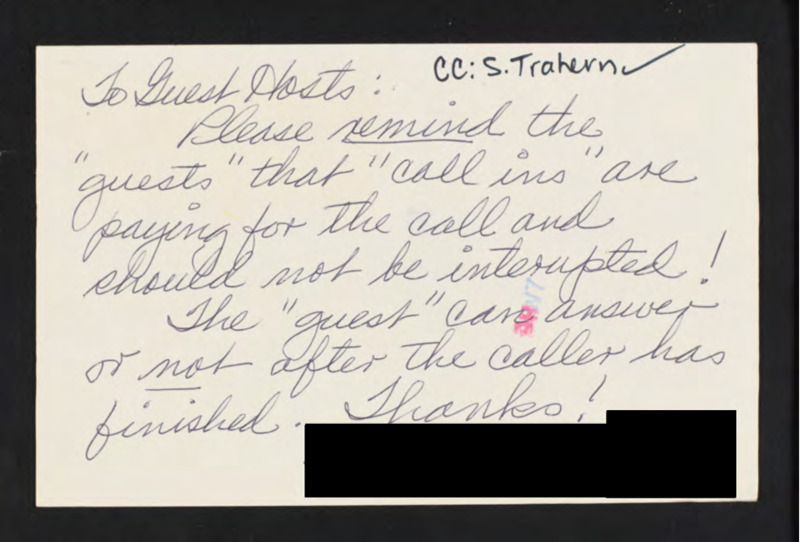 CC: S. Trahern ✓
To Guest Hosts:
Please remind the
"guests" that "call ins" are
paying for the call and
should not be interupted!
The "guest" can answer
or not after the caller has
finished. Thanks!